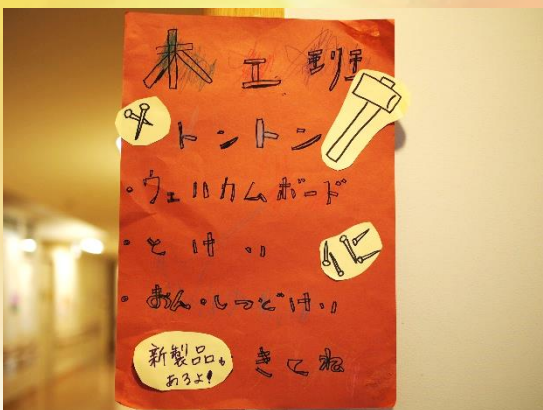 木工班
トントン
・ウェルカムボード
・とけい
・おん・しつどけい
新製品も
あるよ!
きてね